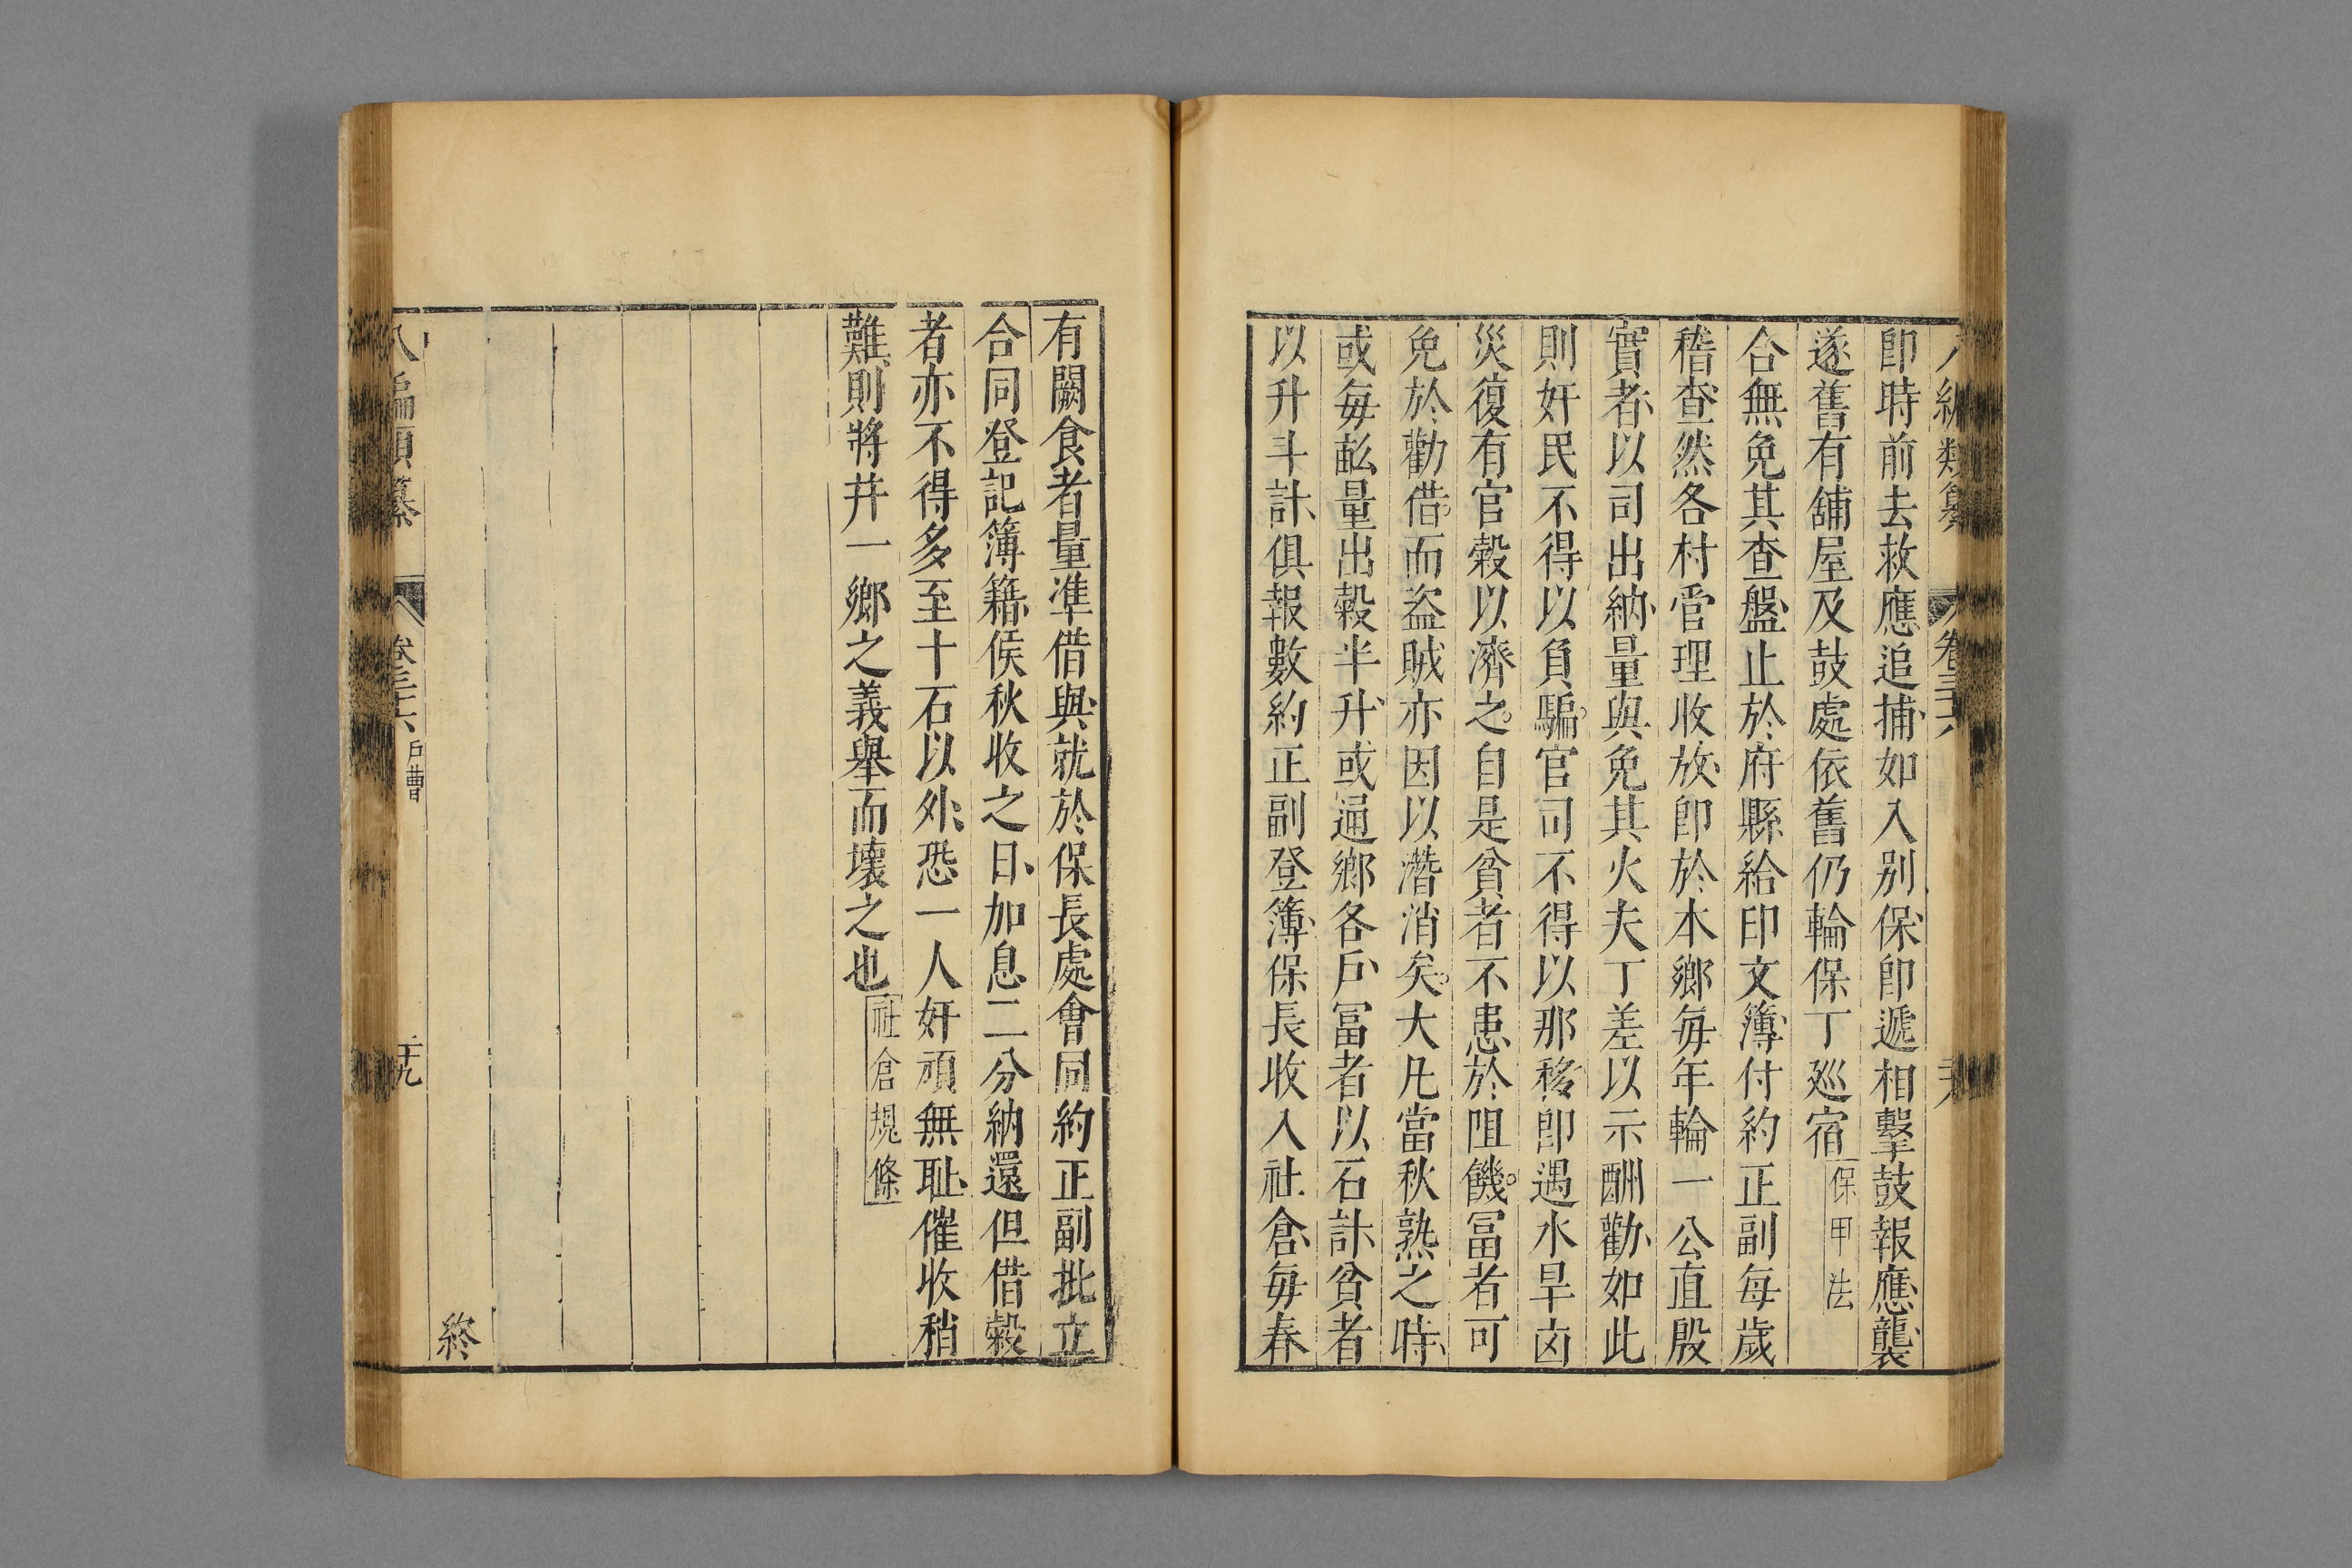 即時前去救應追捕如入別保即遞相擊鼓報應襲
遂舊有舖屋及鼓處依舊仍輪保丁廵宿保甲法
合無免其查盤止於府縣給印文簿付約正副每歲
稽查然各村官理收放即於本鄉每年輪一公直殷
實者以司出納量與免其火夫丁差以示酬勸如此
則奸民不得以負騙官司不得以那移即遇水旱凶
災復有官穀以濟之自是貧者不患於阻饑冨者可
免於勸借而盗賊亦因以潛消矣大凡當秋熟之時
或每畝量出穀半升或通鄉各戶冨者以石計貧者
以升斗計俱報數約正副登簿保長收入社倉每春
有闕食者量準借與就於保長處會同約正副批立
合同登記簿籍俟秋收之日加息二分納還但借穀
者亦不得多至十石以外恐一人奸頑無耻催收稍
難則將并一鄉之義舉而壞之也社倉規條
終
八編類纂 卷三十六 戶曹 二十九